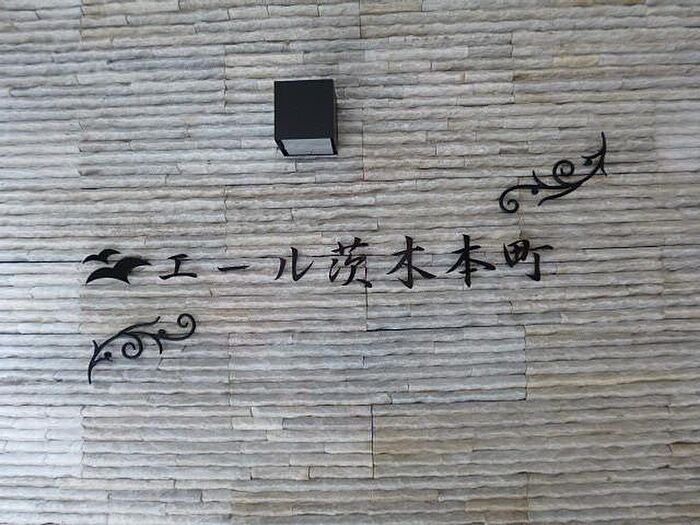 エール茨木本町